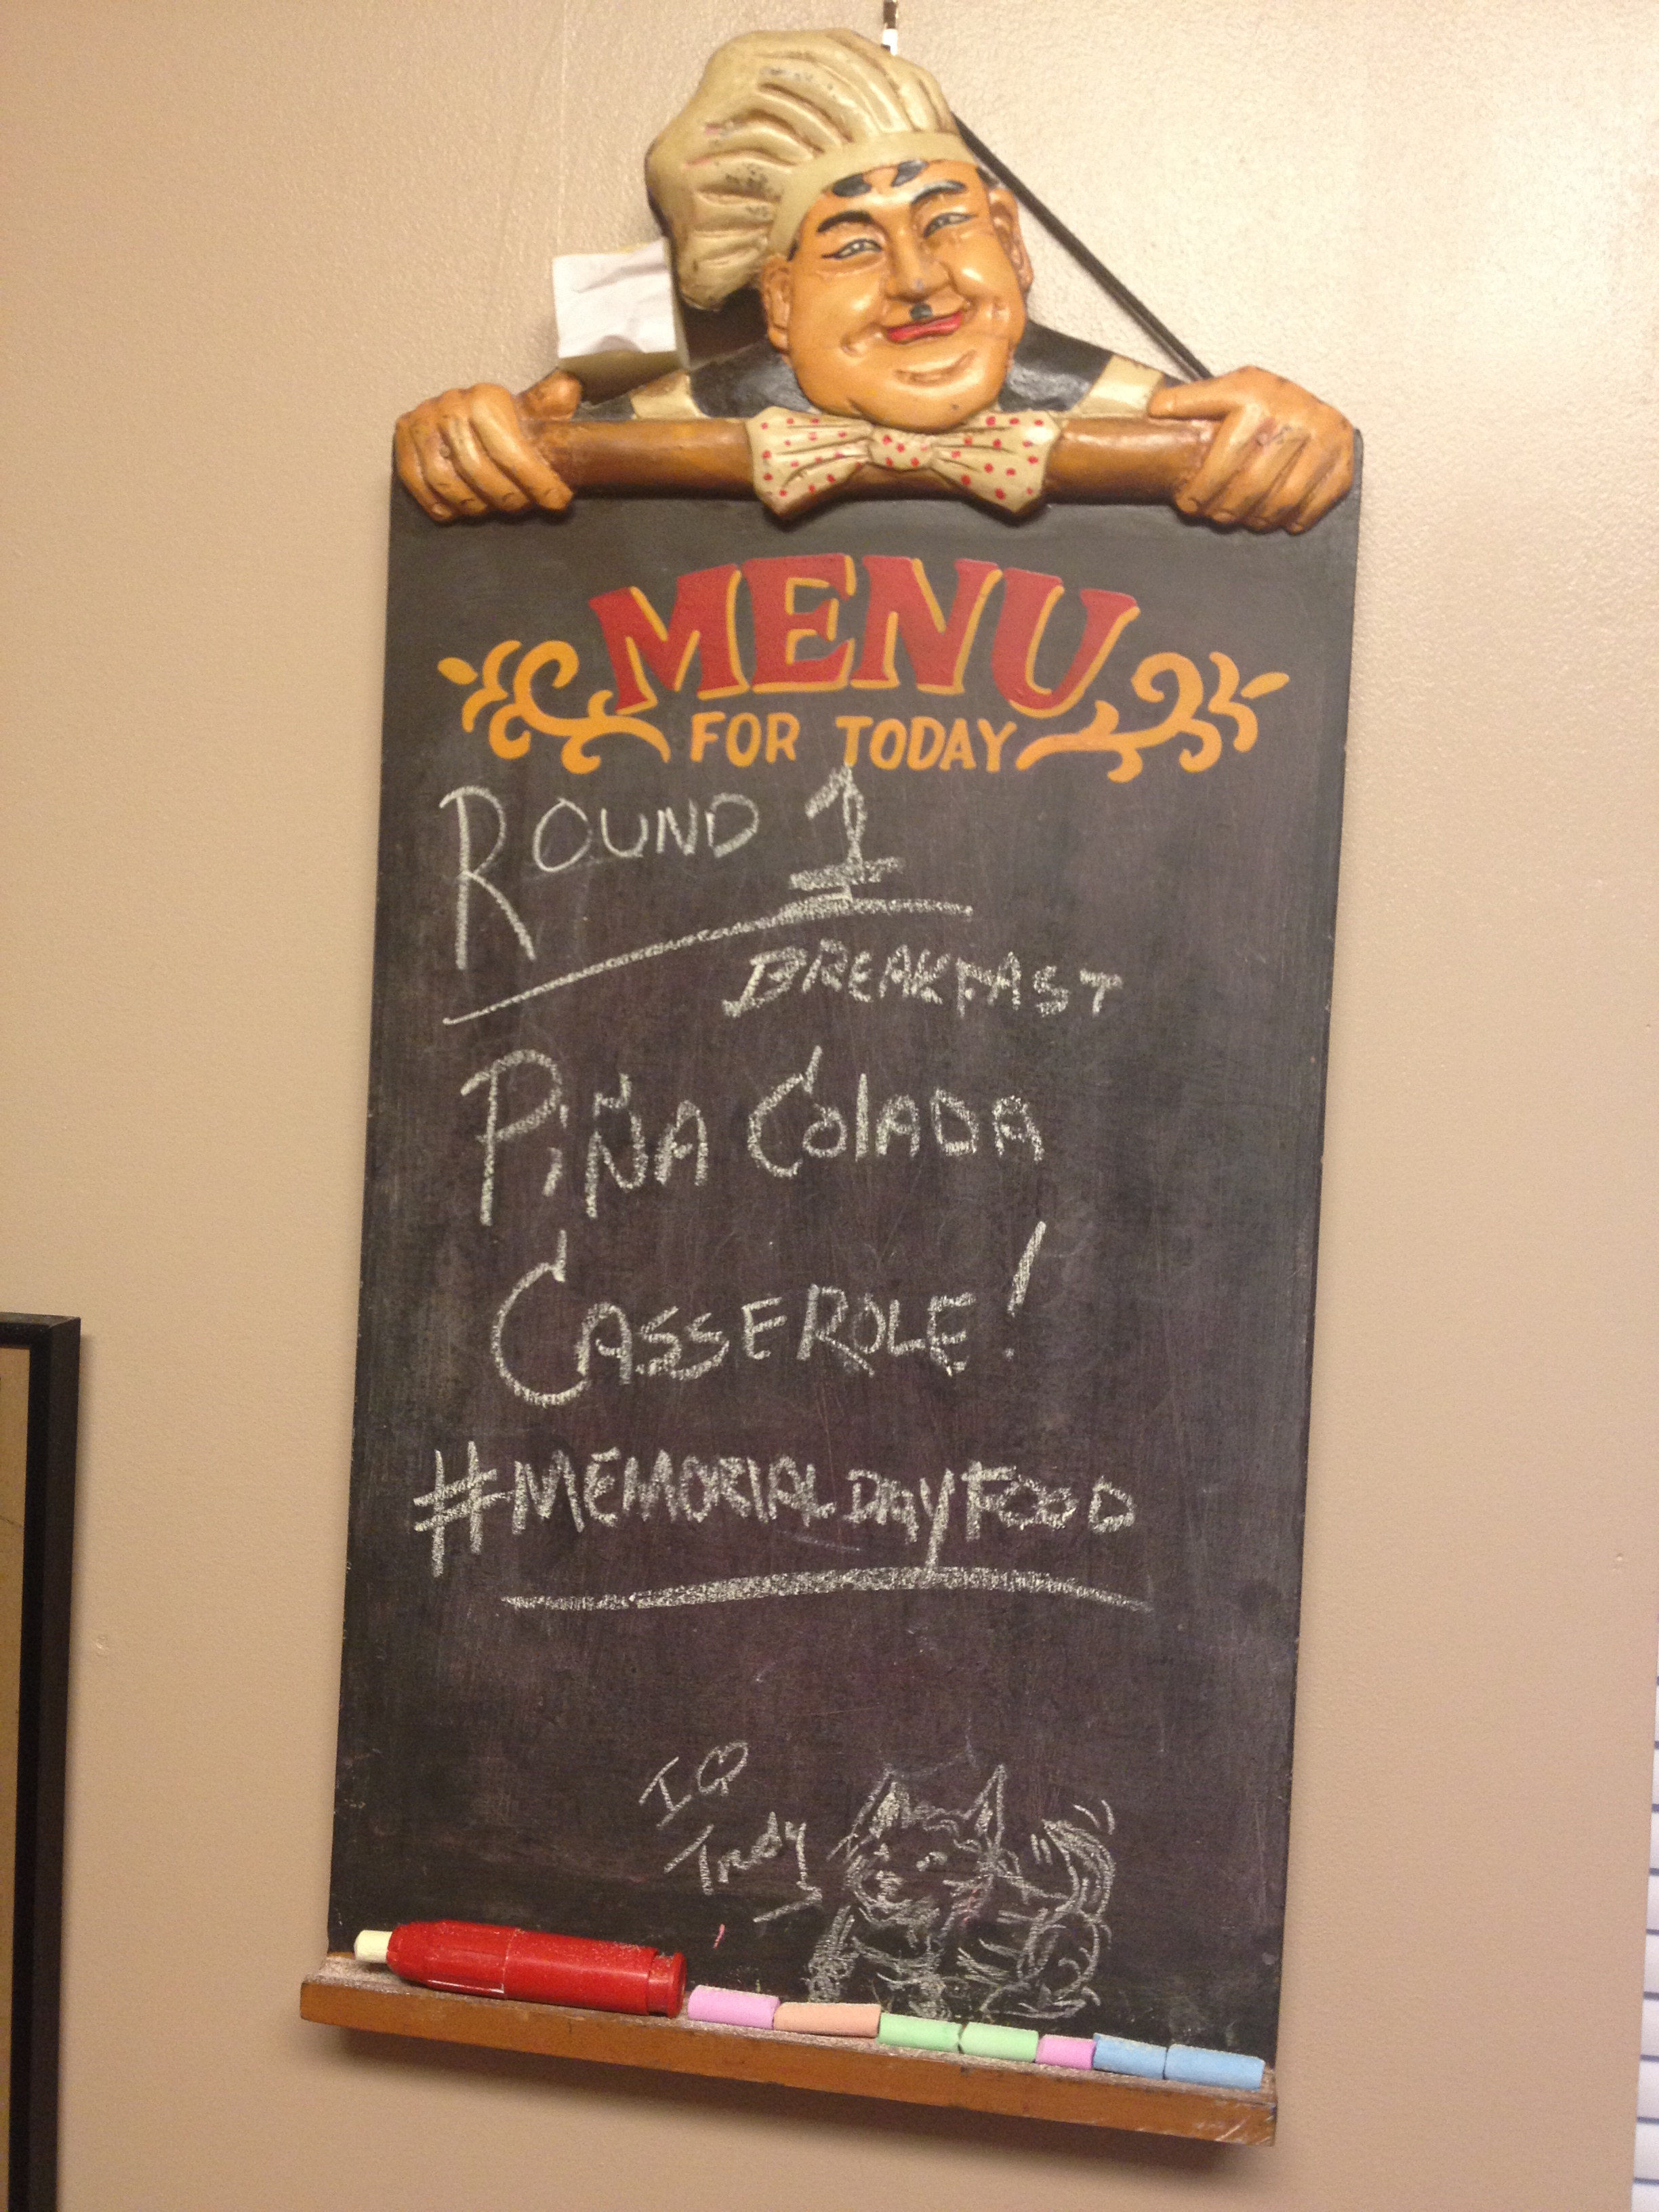 MENU
FOR TODAY
ROUND 1
BREAKFAST
PIÑA COLADA
CASSEROLE!
#MEMORIALDAYFOOD
I ♡
Trudy